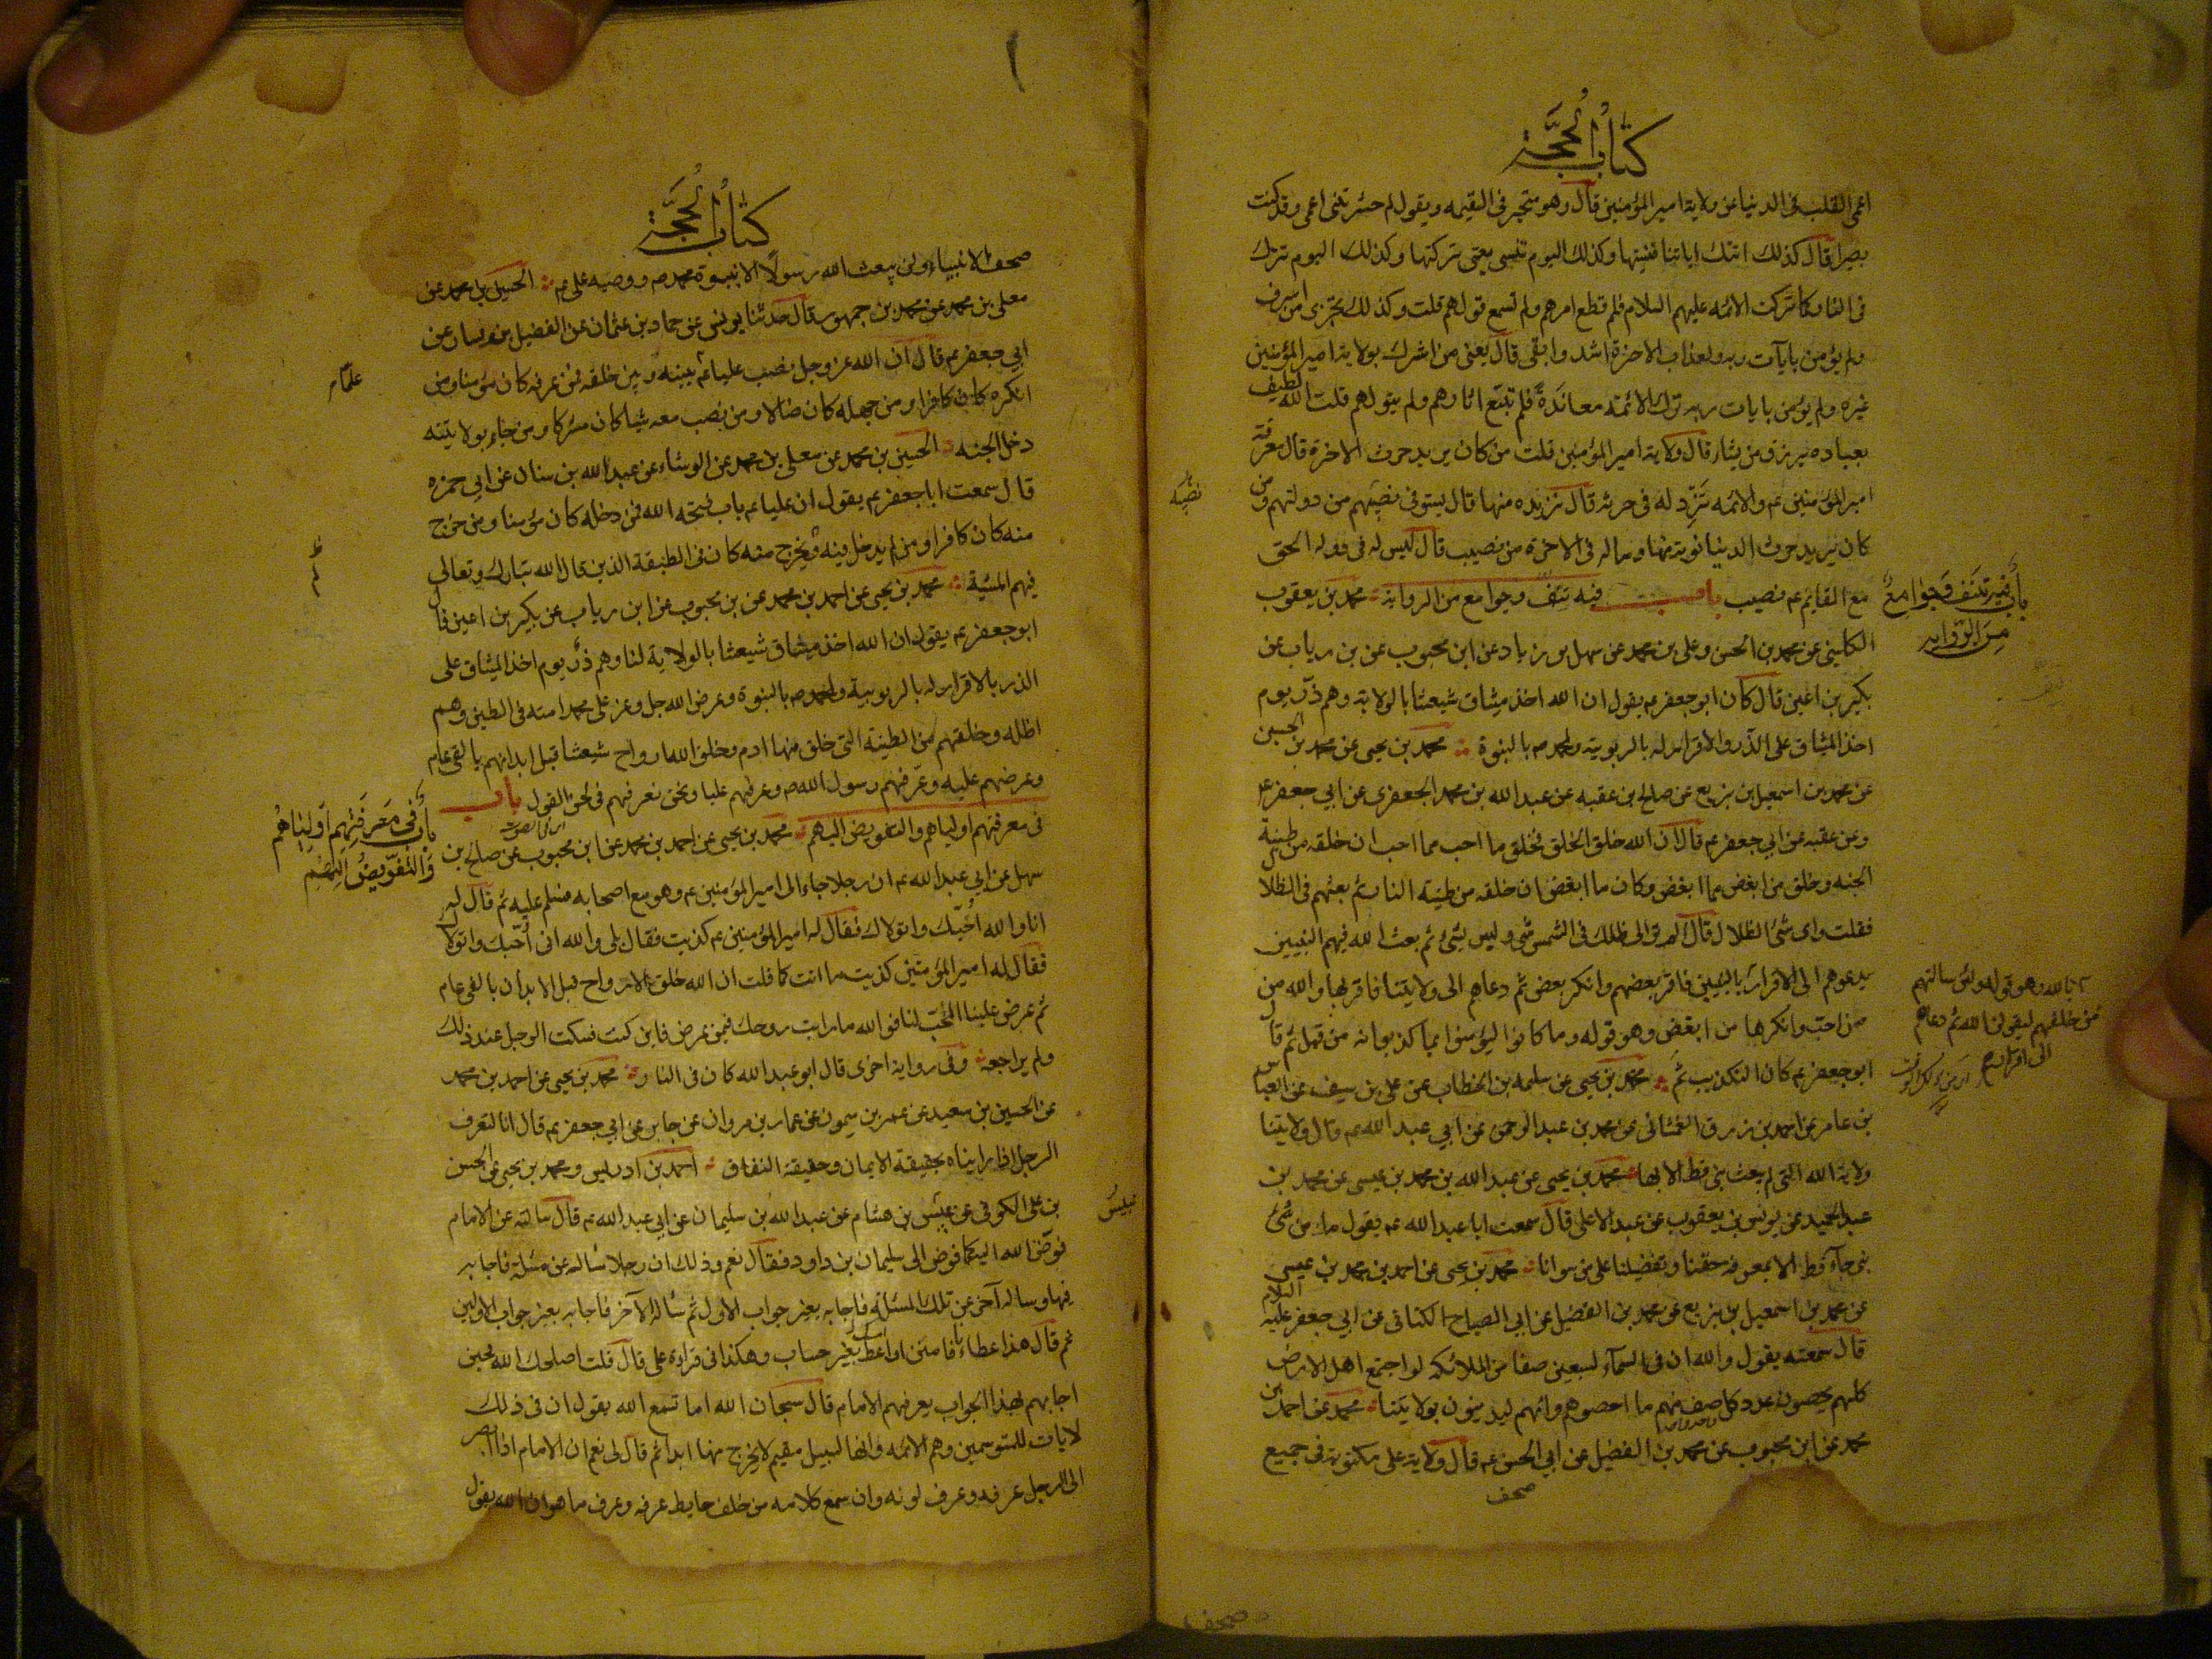 كتاب الحجة
اعمى القلب فى الدنيا عن ولاية امير المؤمنين قال وهو متحير فى القيمه ويقول لم حشرتنى اعمى وقد كنت
بصيرا قال كذلك اتتك اياتنا فنسيتها وكذلك اليوم تنسى يعنى تركتها وكذلك اليوم تترك
فى النار كما تركت الائمه عليهم السلام فلم تطع امرهم ولم تسمع قولهم قلت وكذلك نجزى من اسرف
ولم يؤمن بايآت ربه ولعذاب الاخرة اشد وابقى قال يعنى من اشرك بولاية امير المؤمنين
غيره ولم يؤمن بايات ربه ترك الائمه معاندة فلم تتبع اثارهم ولم يتولهم قلت الله لطيف
بعباده يرزق من يشاء قال ولاية امير المؤمنين قلت من كان يريد حرث الاخرة قال معرفة
امير المؤمنين عم والائمه نزد له فى حرثه قال نزيده منها قال يستوفى نصيبهم من دولتهم ومن
نصيبه
كان يريد حرث الدنيا نوته منها وماله فى الاخرة من نصيب قال ليس له فى دوله الحق
مع القايم عم نصيب باب فيه نتف وجوامع من الرواية محمد بن يعقوب
باب فيه نتف وجوامع
من الرواية
الكلينى عن محمد بن الحسن وعلى بن محمد عن سهل بن زياد عن ابن محبوب عن بن رياب عن
بكير بن اعين قال كان ابو جعفر عم يقول ان الله اخذ ميثاق شيعتنا بالولاية وهم ذر يوم
اخذ الميثاق على الذر والاقرار له بالربوبية ولمحمد ص بالنبوة محمد بن يحيى عن محمد بن الحسين
عن محمد بن اسمعيل بن بزيع عن صالح بن عقبه عن عبد الله بن محمد الجعفرى عن ابى جعفر عم
وعن عقبه عن ابى جعفر عم قال ان الله خلق الخلق فخلق ما احب مما احب ان خلقه من طينة
الجنه وخلق من ابغض مما ابغض وكان ما ابغض ان خلقه من طينة النار ثم بعثهم فى الظلال
فقلت واى شئ الظلال قال الم تر الى ظلك فى الشمس شى وليس بشئ ثم بعث الله فيهم النبيين
يدعوهم الى الاقرار بالنبيين فاقر بعضهم وانكر بعض ثم دعاهم الى ولايتنا فاقر بها والله من
بالله وهو قوله ولئن سالتهم
من خلقهم ليقولن الله ثم دعاهم
الى اقرارهم
من احب وانكرها من ابغض وهو قوله وما كانوا ليؤمنوا بما كذبوا به من قبل ثم قال
ابو جعفر عم كان التكذيب ثم محمد بن يحيى عن سلمه بن الخطاب عن على بن سيف عن العباس
بن عامر عن احمد بن رزق الغمشانى عن محمد بن عبد الرحمن عن ابى عبد الله عم قال ولايتنا
ولاية الله التى لم يبعث نبى قط الا بها محمد بن يحيى عن عبد الله بن محمد بن عيسى عن محمد بن
عبد الحميد عن يونس بن يعقوب عن عبد الاعلى قال سمعت ابا عبد الله عم يقول ما من نبئ
نبى جآء قط الا بمعرفه حقنا وتفضيلنا على من سوانا محمد بن يحيى عن احمد بن محمد بن عيسى
عن محمد بن اسمعيل بن بزيع عن محمد بن الفضيل عن ابى الصباح الكنانى عن ابى جعفر عليه السلام
قال سمعته يقول والله ان فى السمآء لسبعين صفا من الملائكه لو اجتمع اهل الارض
كلهم يحصون عدد كل صف منهم ما احصوهم وانهم ليدينون بولايتنا محمد عن احمد بن
محمد عن ابن محبوب عن محمد بن الفضيل عن ابى الحسن عم قال ولاية على مكتوبة فى جميع
صحف
كتاب الحجة
صحف الانبياء ولن يبعث الله رسولا الا بنبوة محمد ص ووصيه على عم الحسين بن محمد عن
معلى بن محمد عن محمد بن جمهور قال حدثنا يونس عن حماد بن عثمان عن الفضيل بن يسار عن
ابى جعفر عم قال ان الله عز وجل نصب عليا عم بينه وبين خلقه فمن عرفه كان مؤمنا ومن
علما
انكره كان كافرا ومن جهله كان ضالا ومن نصب معه شيا كان مشركا ومن جاء بولايته
دخل الجنه الحسين بن محمد عن معلى بن محمد عن الوشاء عن عبد الله بن سنان عن ابى حمزه
قال سمعت ابا جعفر عم يقول ان عليا عم باب فتحه الله فمن دخله كان مؤمنا ومن خرج
منه كان كافرا ومن لم يدخل فيه ولم يخرج منه كان فى الطبقة الذين قال الله تبارك وتعالى
فيهم المشية محمد بن يحيى عن احمد بن محمد عن بن محبوب عن ابن رياب عن بكير بن اعين قال
ابو جعفر عم يقول ان الله اخذ ميثاق شيعتنا بالولاية لنا وهم ذر يوم اخذ الميثاق على
الذر بالاقرار له بالربوبية ولمحمد ص بالنبوة وعرض الله جل وعز على محمد امته فى الطين وهم
اظله وخلقهم من الطينة التى خلق منها ادم وخلق الله ارواح شيعتنا قبل ابدانهم بالفى عام
وعرضهم عليه وعرفهم رسول الله ص وعرفهم عليا ونحن نعرفهم فى لحن القول باب
فى معرفتهم اولياهم والتفويض اليهم محمد بن يحيى عن احمد بن محمد عن ابن محبوب عن صالح بن
باب فى معرفتهم اوليآهم
والتفويض اليهم
سهل عن ابى عبد الله عم ان رجلا جاء الى امير المؤمنين عم وهو مع اصحابه فسلم عليه ثم قال له
انا والله احبك واتولاك فقال له امير المؤمنين عم كذبت فقال بلى والله انى احبك واتولاك
فقال له امير المؤمنين كذبت ما انت كما قلت ان الله خلق الارواح قبل الابدان بالفى عام
ثم عرض علينا المحب لنا فو الله ما رايت روحك فيمن عرض فاين كنت فسكت الرجل عند ذلك
ولم يراجعه وفى رواية اخرى قال ابو عبد الله كان فى النار محمد بن يحيى عن احمد بن محمد
عن الحسين بن سعيد عن عمر بن ميمون عن عمار بن مروان عن جابر عن ابى جعفر عم قال انا لنعرف
الرجل اذا رايناه بحقيقة الايمان وحقيقة النفاق احمد بن ادريس ومحمد بن يحيى عن الحسن
بن على الكوفى عن عبيس بن هشام عن عبد الله بن سليمان عن ابى عبد الله عم قال سالته عن الامام
عبيس
فوض الله اليه كما فوض الى سليمان بن داود فقال نعم وذلك ان رجلا ساله عن مسئلة فاجابه
فيها وساله آخر عن تلك المسئلة فاجابه بغير جواب الاول ثم سئاله الآخر فاجابه بغير جواب الاولين
ثم قال هذا عطاؤنا فامنن او اعط بغير حساب وهكذا فى قراءة على قال قلت اصلحك الله فحين
اجابهم بهذا الجواب يعرفهم الامام قال سبحان الله اما تسمع الله يقول ان فى ذلك
لايات للمتوسمين وهم الائمه وانها لبسبيل مقيم لا يخرج منها ابدا ثم قال لى نعم ان الامام اذا ابصر
الى الرجل عرفه وعرف لونه وان سمع كلامه من خلف حايط عرفه وعرف ما هو ان الله يقول